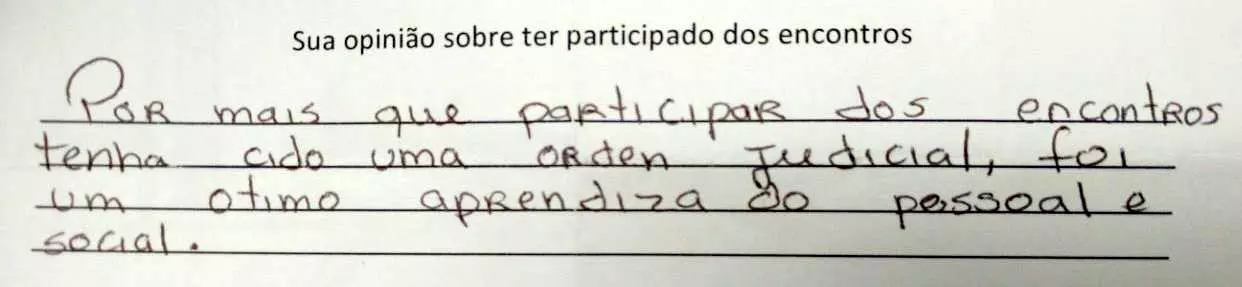 Sua opinião sobre ter participado dos encontros
Por mais que participar dos encontros
tenha cido uma orden Judicial, foi
um otimo aprendizado pessoal e
social.